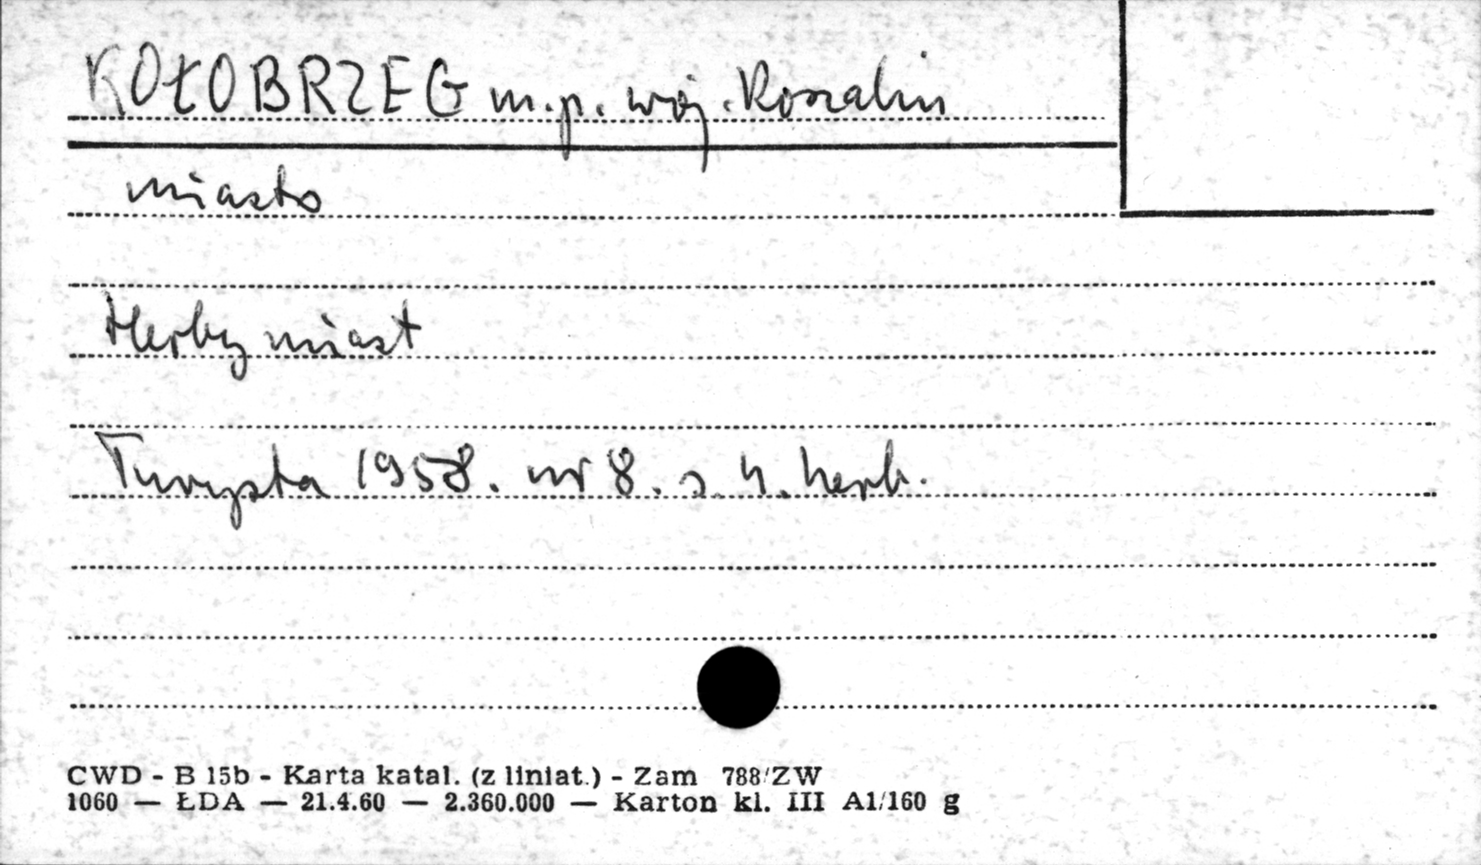 KOŁOBRZEG m.p. woj. Koszalin
miasto
Herby miast
Turysta 1958. nr 8. s. 4. herb.
CWD - B 15b - Karta katal. (z liniat.) - Zam 788/ZW
1060 — ŁDA — 21.4.60 — 2.360.000 — Karton kl. III A1/160 g